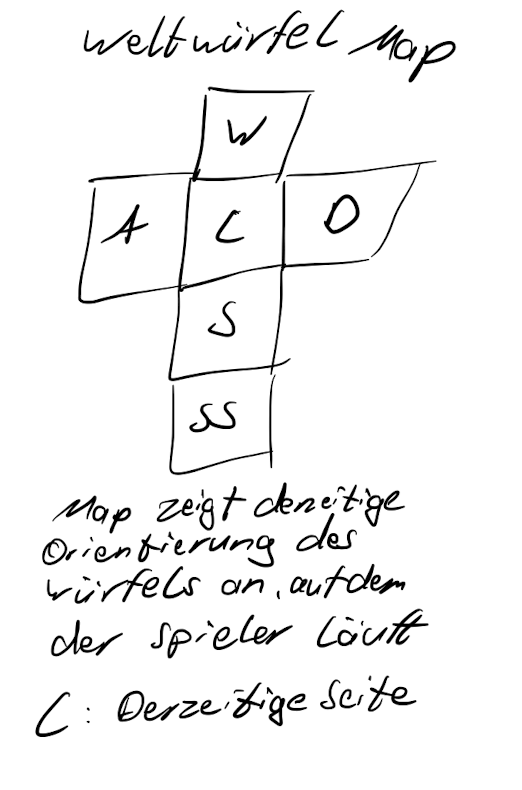 Weltwürfel Map
W
A C D
S
SS
Map zeigt derzeitige
Orientierung des
würfels an, auf dem
der spieler Läuft
C: Derzeitige Seite